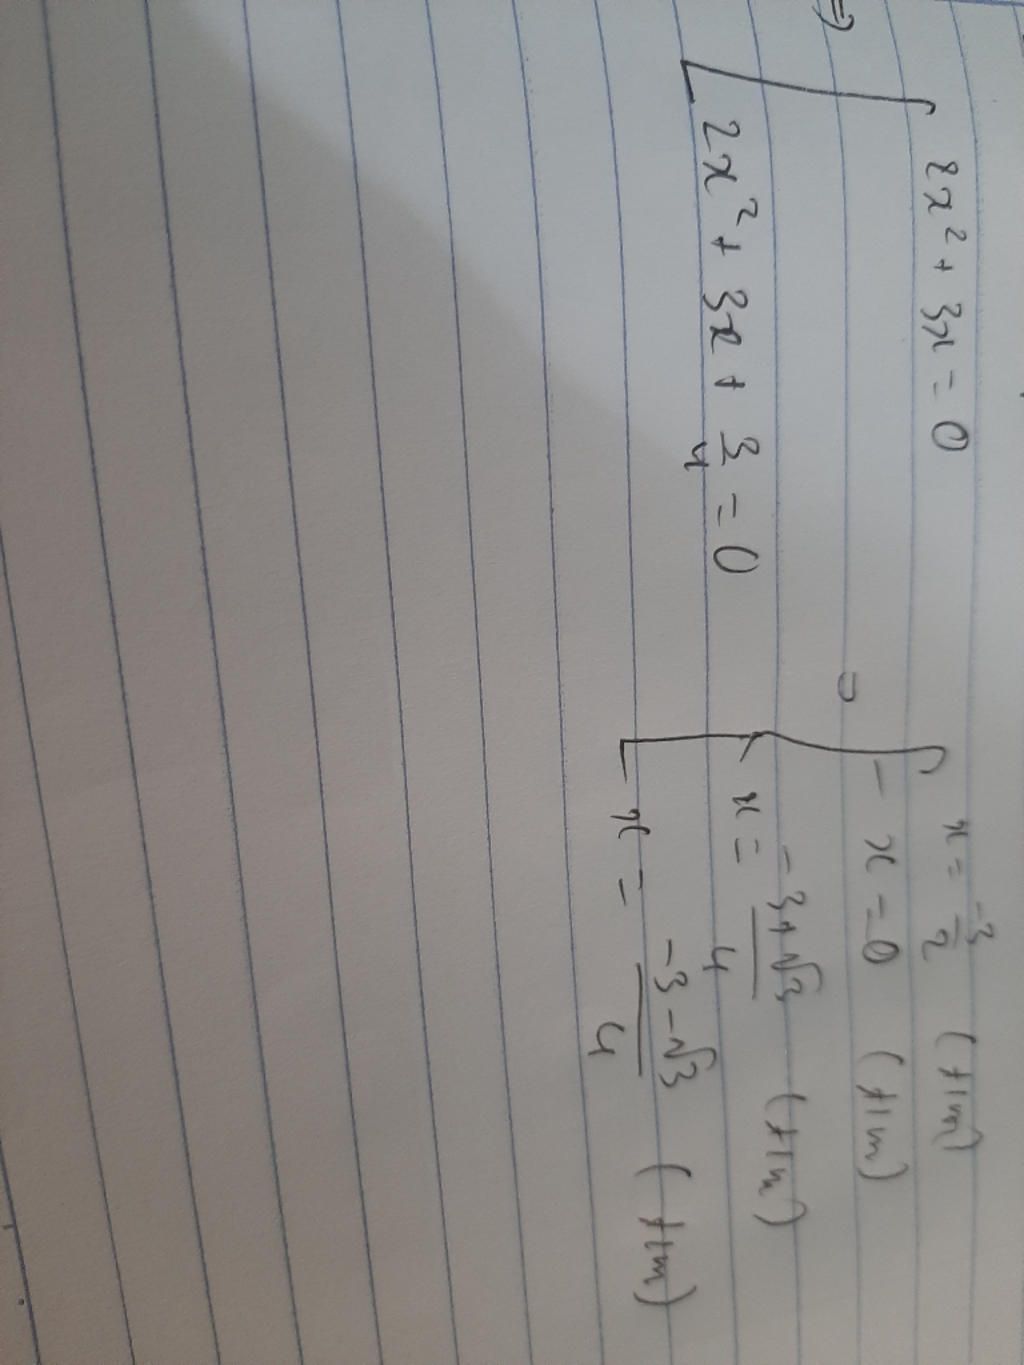 ⇒ [ 2x² + 3x = 0
2x² + 3x + 3/4 = 0
⇒ [ x = -3/2 (t/m)
x = 0 (t/m)
x = (-3+√3)/4 (t/m)
x = (-3-√3)/4 (t/m)